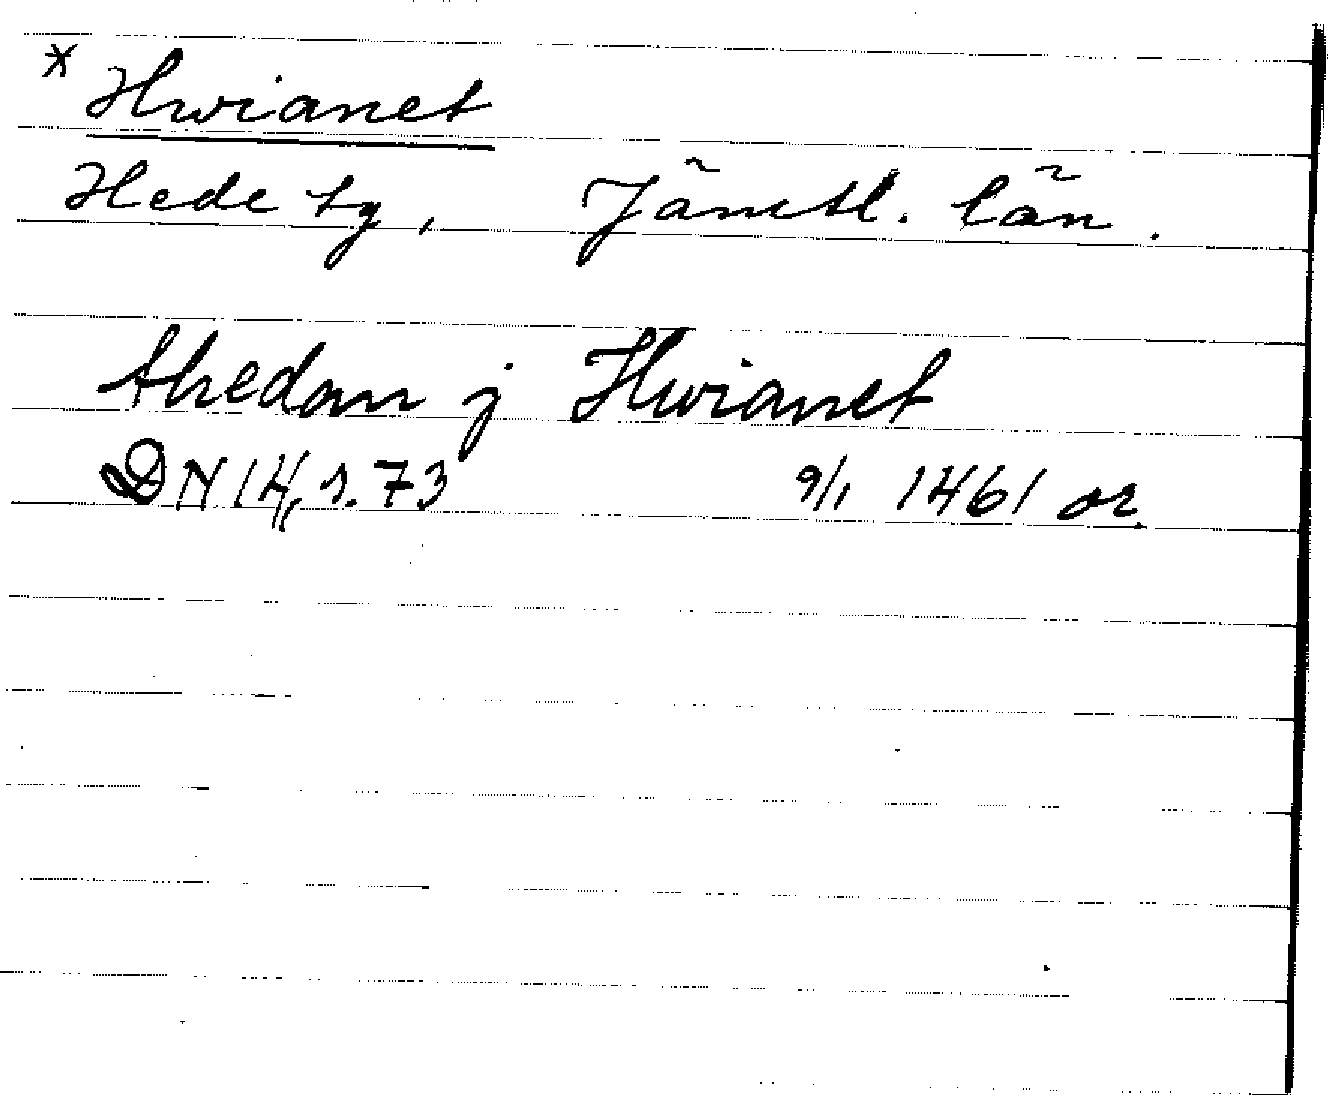 * Hwianet
Hede tg, Jämtl. län.
thedan j Hwianet
DN 14, s. 73 9/1 1461 or.